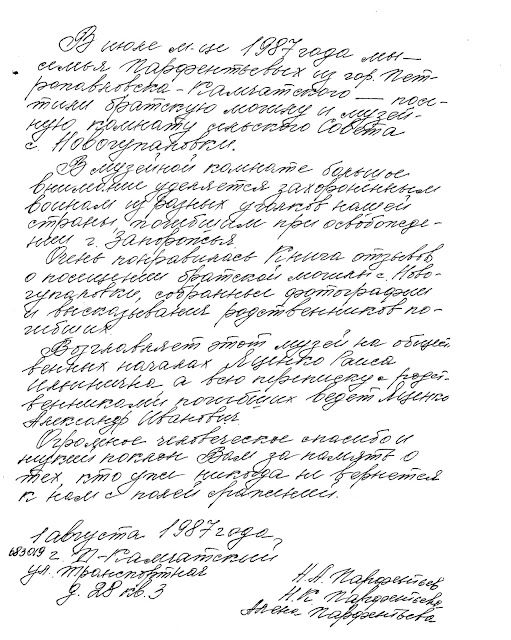 В июле м-це 1987 года мы —
семья Парфентьевых из гор. Пет-
ропавловска-Камчатского — посе-
тили братскую могилу и музей-
ную комнату сельского Совета
с. Новогупаловки.
В музейной комнате большое
внимание уделяется захоронённым
воинам из разных уголков нашей
страны, погибшим при освобожде-
нии г. Запорожья.
Очень понравилась Книга отзывов
о посещении братской могилы с. Ново-
гупаловки, собранные фотографии
и высказывания родственников по-
гибших.
Возглавляет этот музей на общест-
венных началах Яценко Раиса
Ильинична, а всю переписку с родст-
венниками погибших ведёт Яценко
Александр Иванович.
Огромное человеческое спасибо и
низкий поклон Вам за память о
тех, кто уже никогда не вернется
к нам с полей сражений.
1 августа 1987 года,
683019 г. П-Камчатский
ул. Транспортная
д. 28 кв. 3
Н. А. Парфентьев
Н. К. Парфентьева
Алена Парфентьева